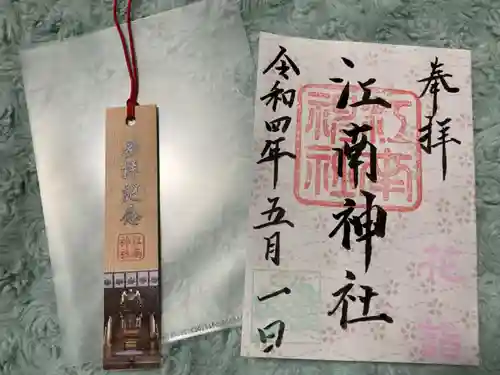 奉拝
江南神社
江南神社
令和四年五月一日
参拝記念
江南神社